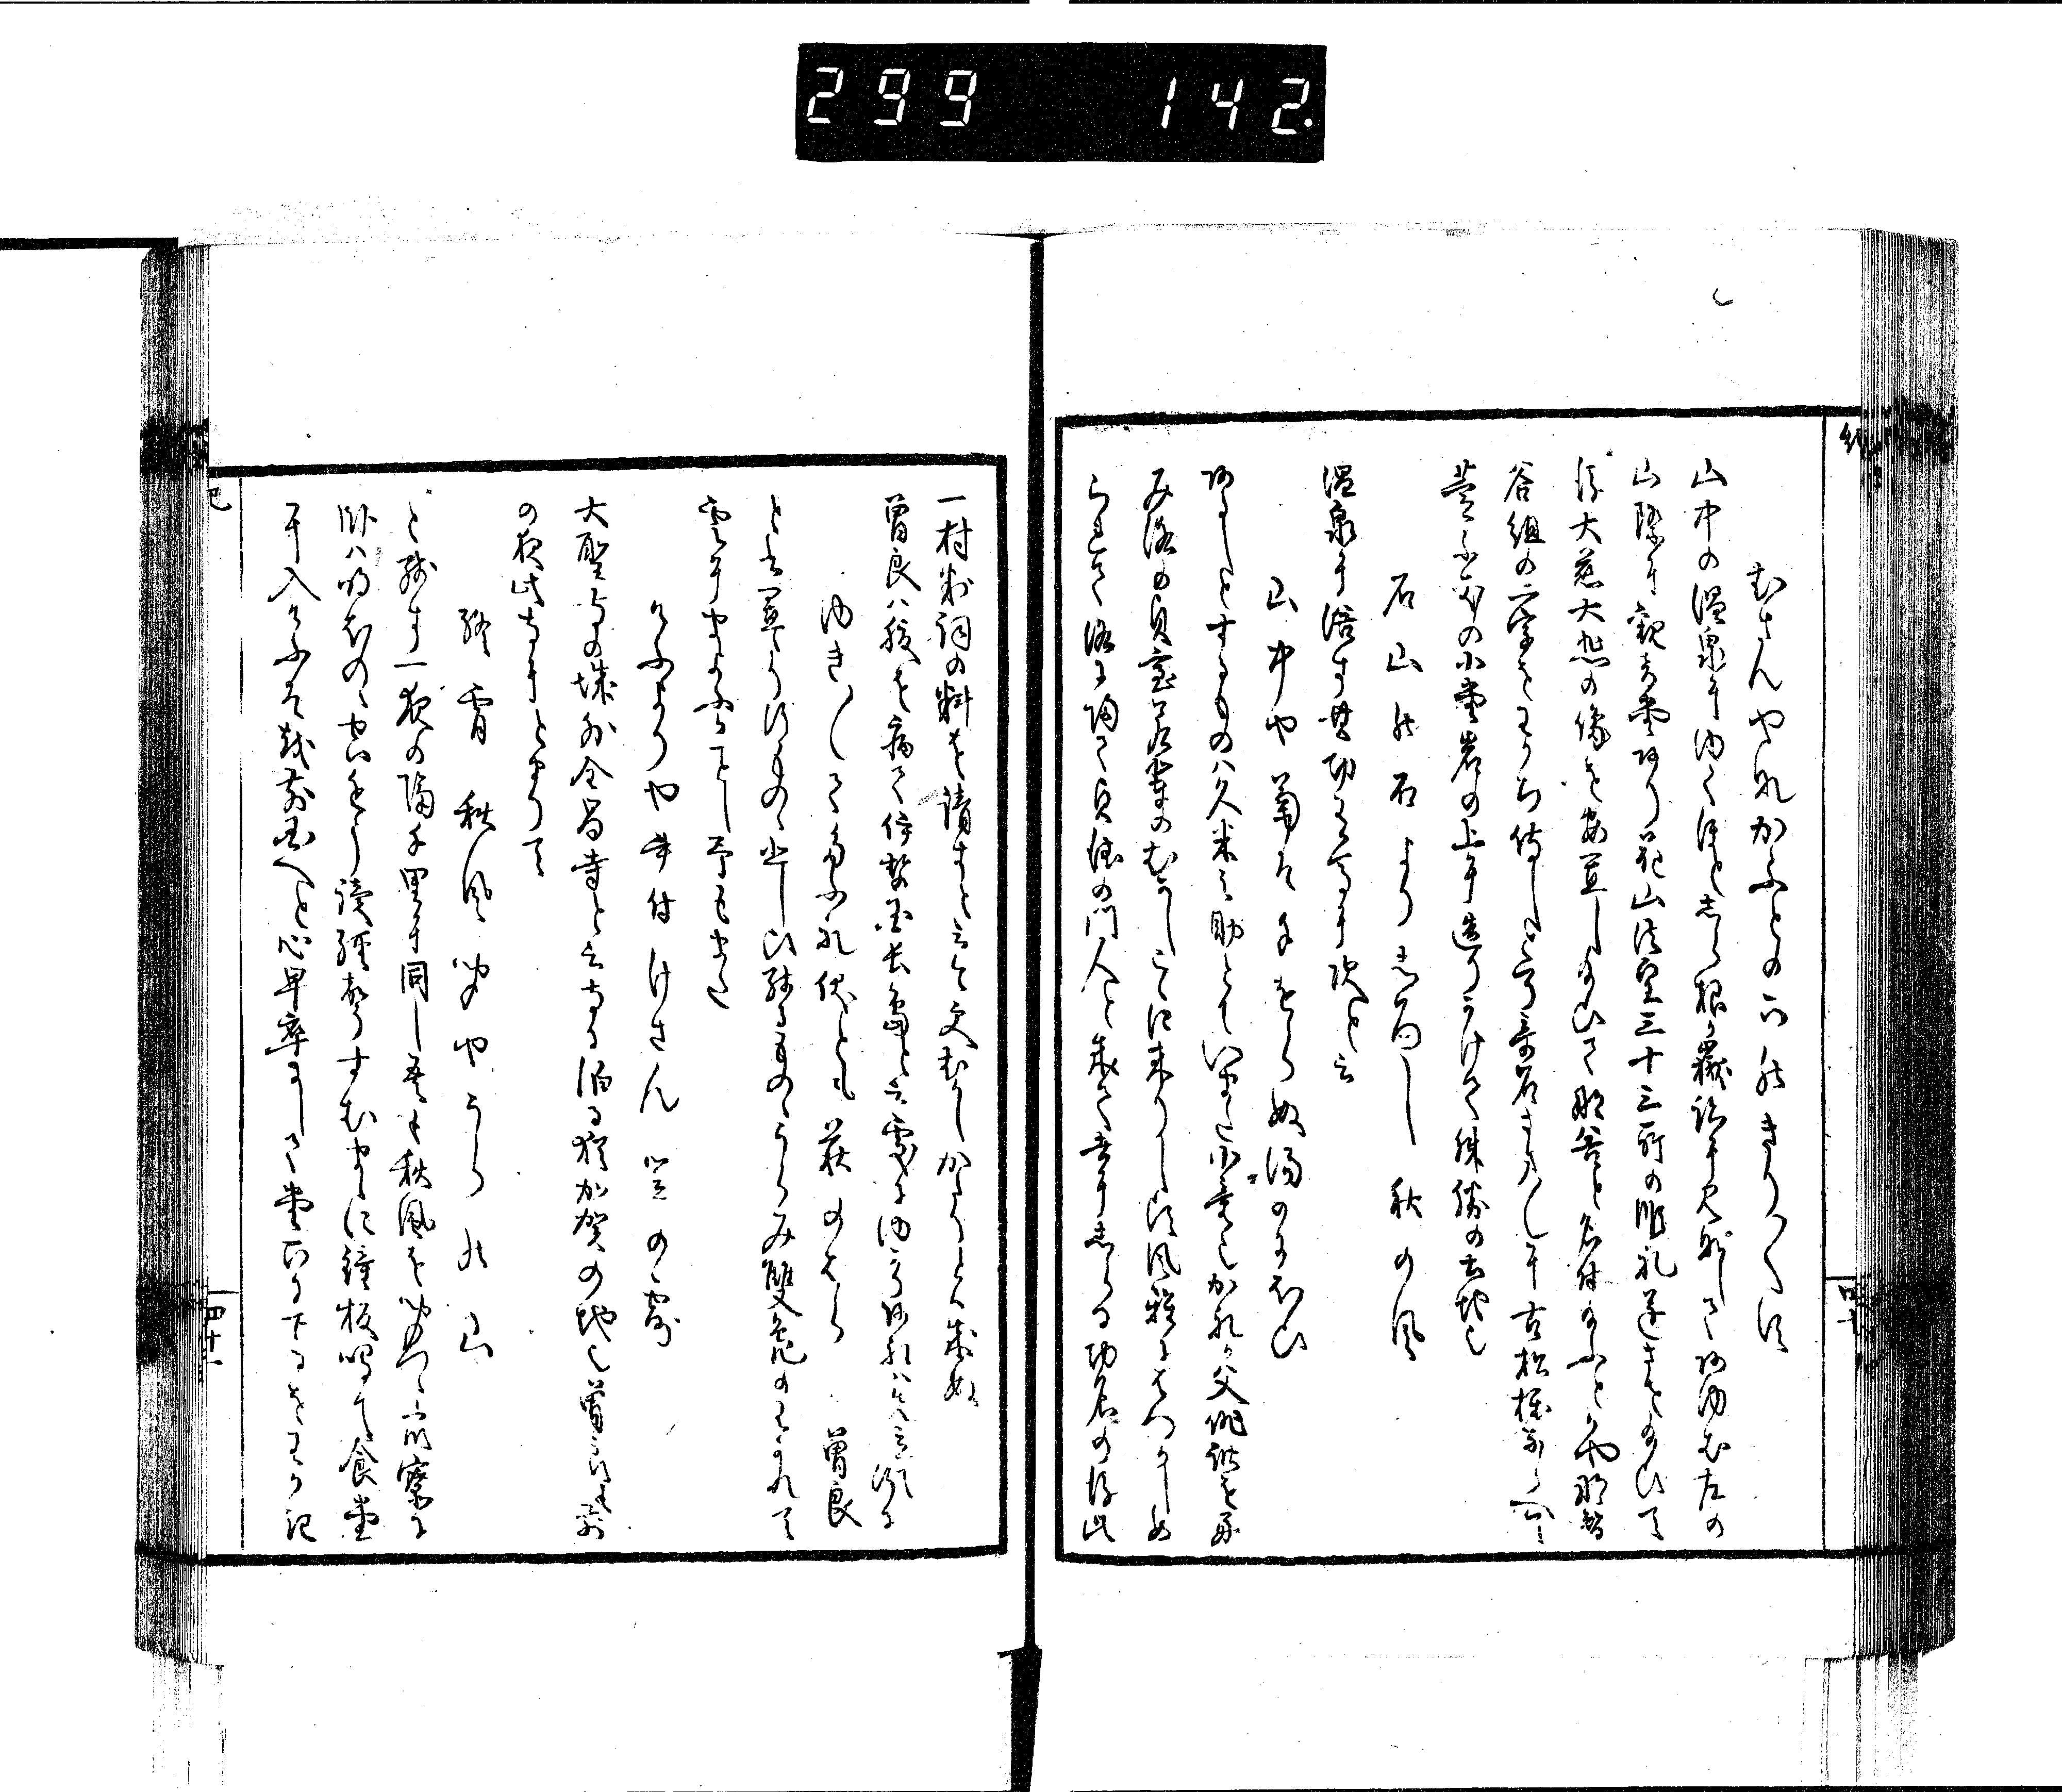 299 142
むさんやなかふとの下のきり〱す
山中の温泉にゆくほと志ら根か嶽跡に見なしてあゆむ左の
山際に観音堂あり花山法皇三十三所の順礼遂させ給ひて
後大慈大悲の像を安置し給ひて那谷と名付給ふとかや那智
谷組の二字をわかち侍しとそ奇石さま〱に古松植ならへて
萱ふきの小堂岩の上に造りかけて殊勝の土地也
石山の石より志ろし秋の風
温泉に浴す其功有間に次と云
山中や菊はたをらぬ湯のにほひ
あるしとするものは久米之助とていまた小童也かれか父俳諧を好
み洛の貞室若輩のむかしこゝに来りし比風雅にはつかしめ
られて洛に帰て貞徳の門人と成て世に志らる功名の後此
一村判詞の料を請すと云今更むかしかたりとは成ぬ
曽良は腹を病て伊勢国長嶋と云処にゆかりあれは先立行に
ゆき〱てたふれ伏とも萩のはら 曽良
と書置たり行ものゝ悲しひ残るものゝうらみ隻鳧のわかれて
雲にまよふことし予もまた
けふよりや書付けさん笠の露
大聖寺の城外全昌寺と云寺に泊る猶加賀の地也曽良も前
の夜此寺にとまりて
終宵秋風聞やうらの山
と残す一夜の隔千里に同し吾も秋風を聞つゝ衆寮に
臥は明ほのゝ空近う読経声すむまゝに鐘板鳴て食堂
に入けふは越前国へと心早卒にして堂下に下るをわか記
四十一